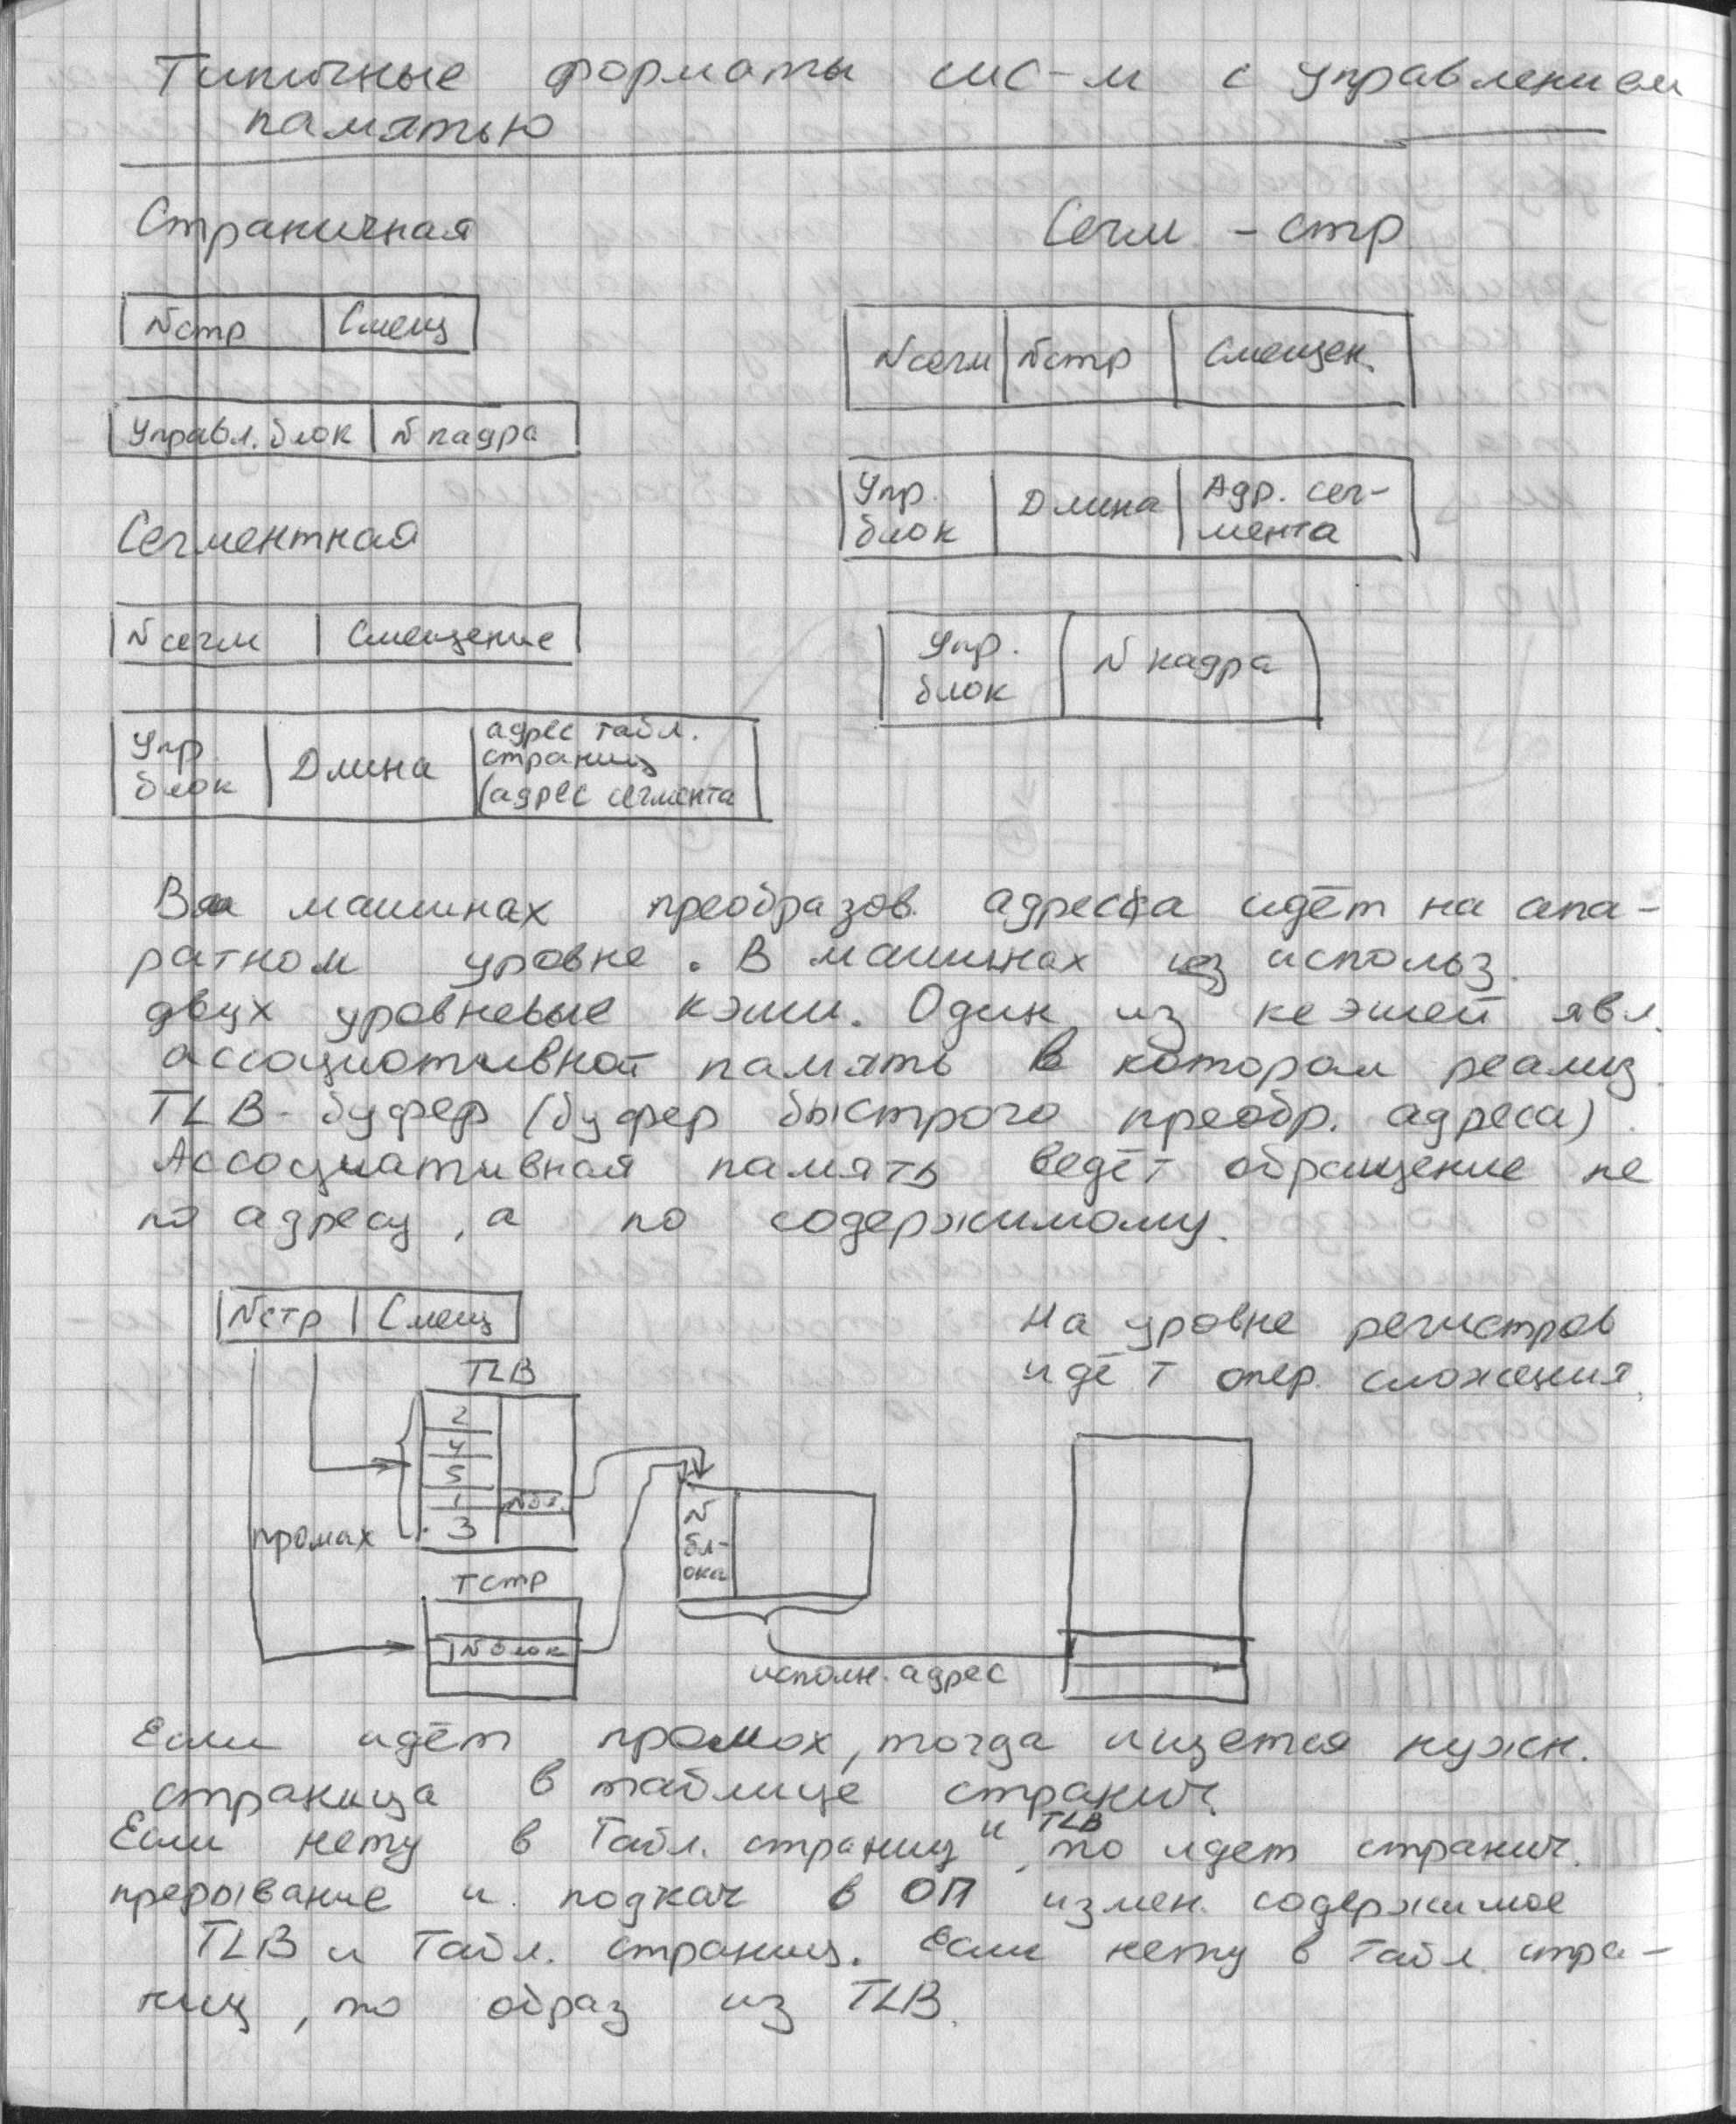 Типичные форматы сис-м с управлением
памятью
Страничная
Nстр | Смещ
Управл. блок | N кадра
Сегментная
N сегм | Смещение
Упр. блок | Длина | адрес табл. страниц (адрес сегмента
Сегм - стр
Nсегм | Nстр | Смещен.
Упр. блок | Длина | Адр. сег-мента
Упр. блок | N кадра
В машинах преобразов. адреса идёт на апа-
ратном уровне. В машинах использ.
двух уровневые кэши. Один из кешей явл.
ассоциотивной память в котором реализ.
TLB- буфер (буфер быстрого преобр. адреса).
Ассоциативная память ведёт обращение не
по адресу, а по содержимому.
Nстр | Смещ
На уровне регистров
идёт опер. сложения.
TLB
2
4
5
1 | Nбл.
3
промах
N бл-ока
Тстр
N блок
исполн. адрес
Если идёт промох, тогда ищется нужн.
страница в таблице странич.
Если нету в Табл. страниц и TLB, то идет странич.
прерывание и подкач в ОП измен. содержимое
TLB и Табл. страниц. Если нету в Табл. стра-
ниц, то образ из TLB.